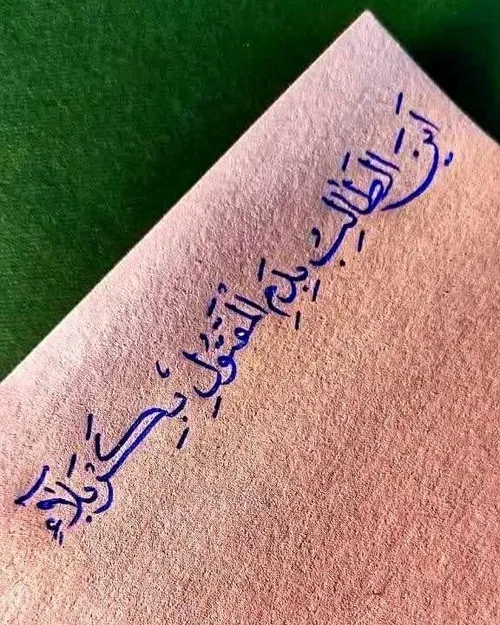 اَينَ الطَالِبُ بِدَمِ المَقتُولِ بِكَربَلَاءِ